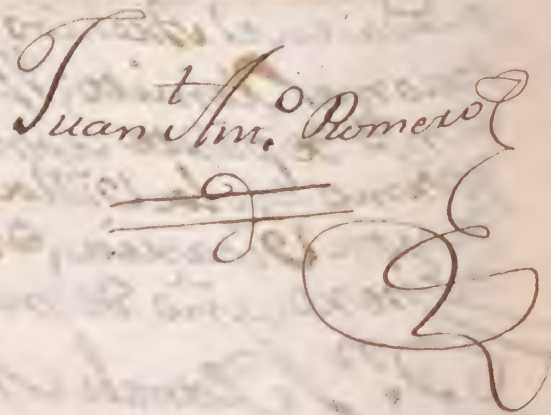 Juan Ant.º Romero